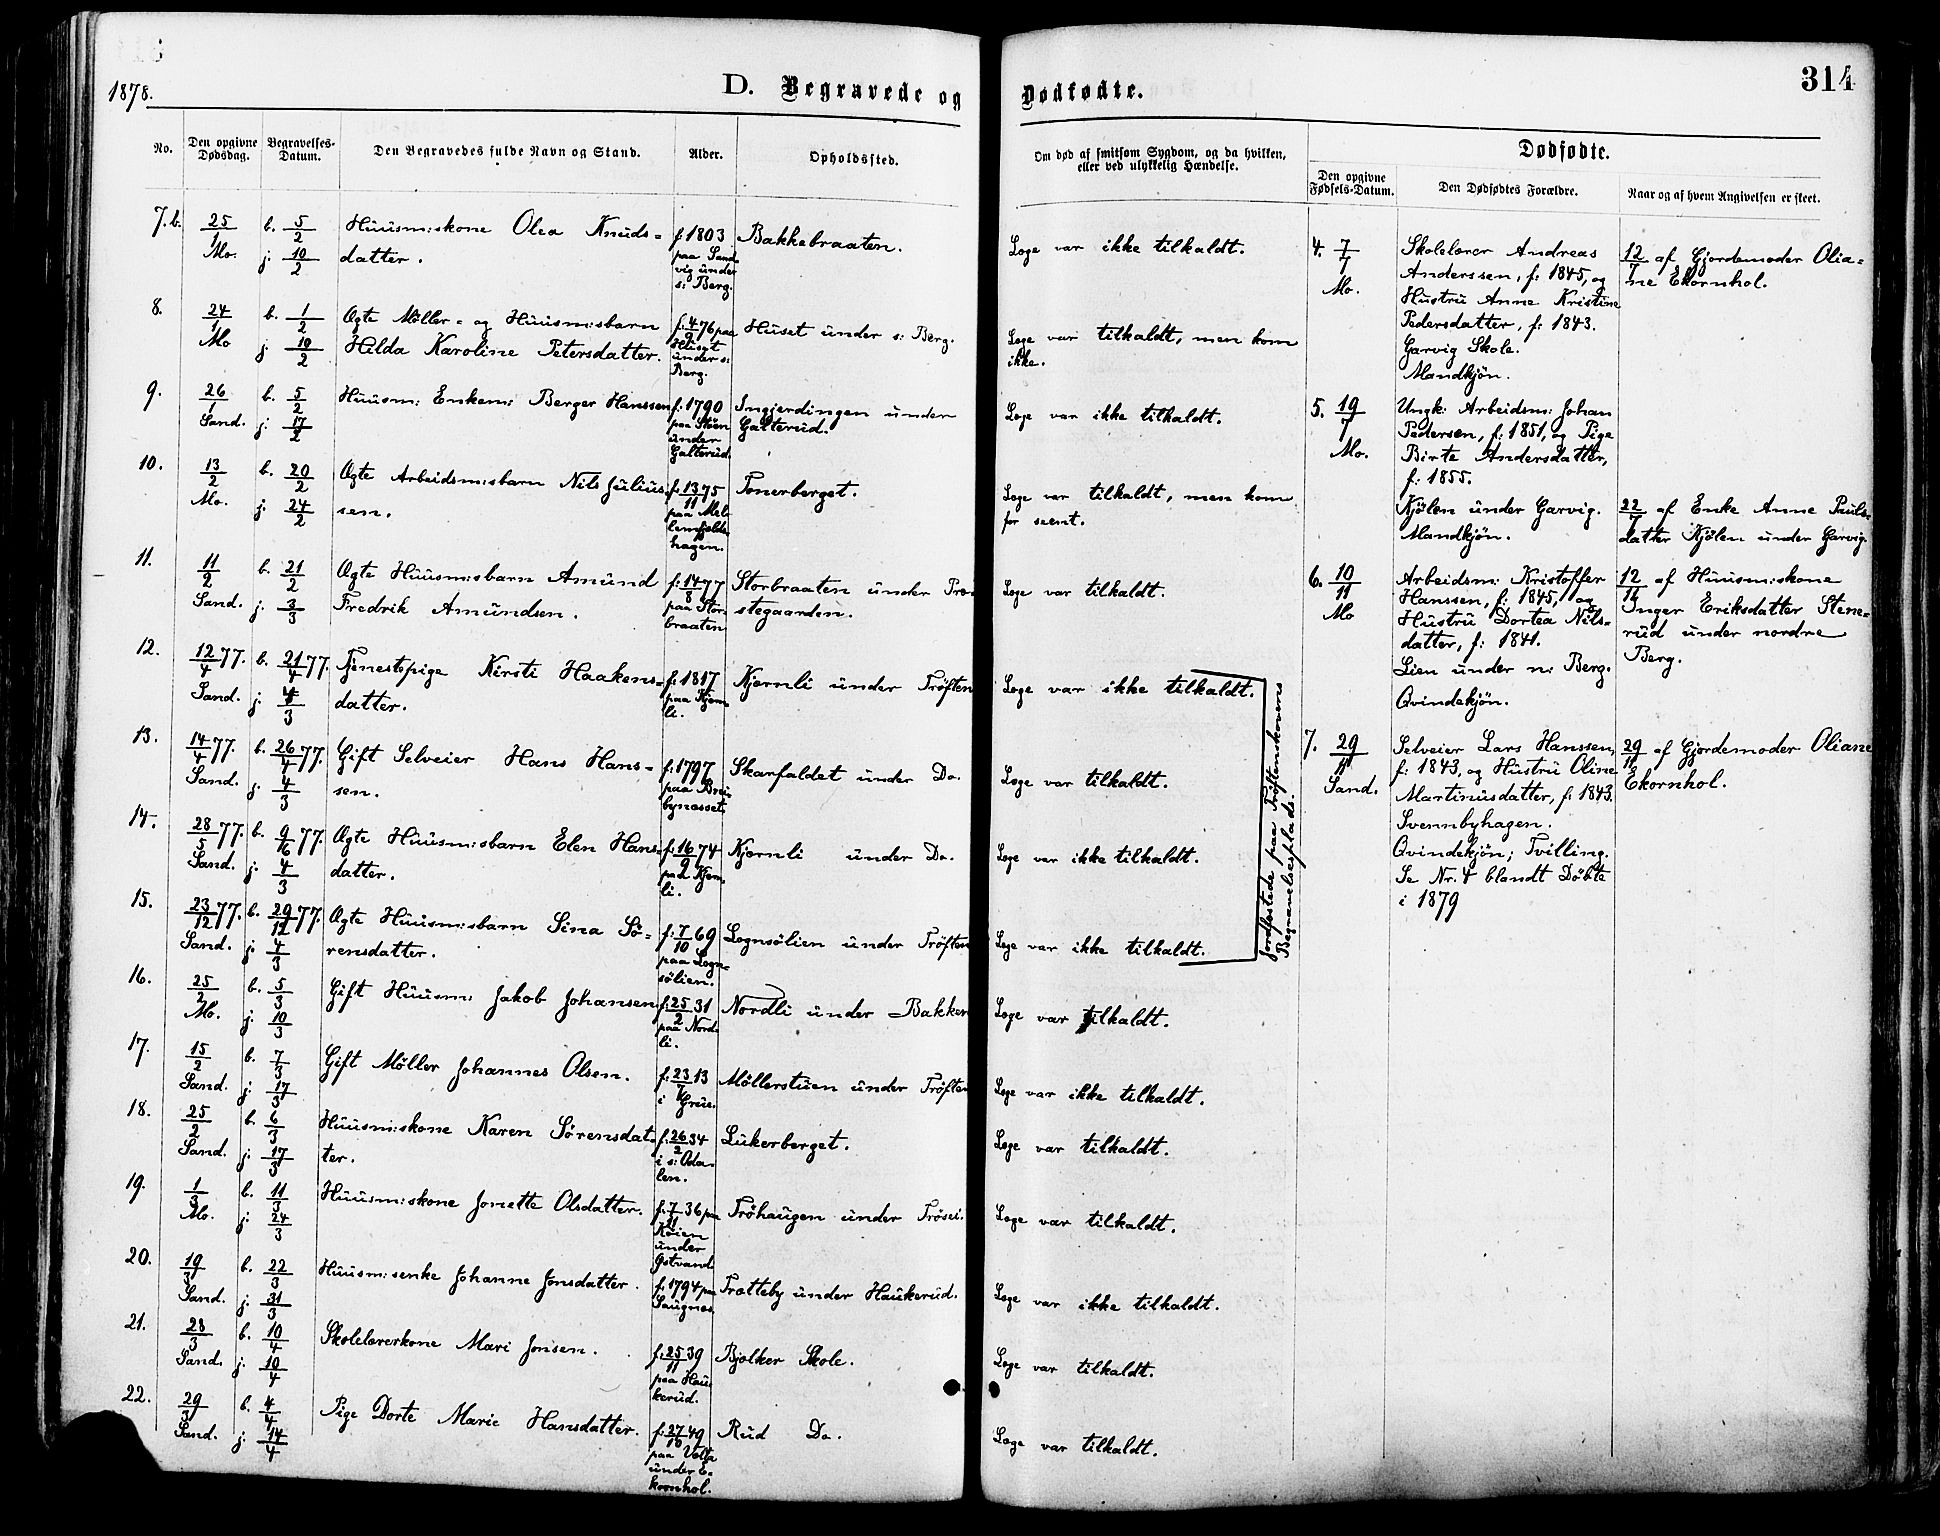 1878.
D. Begravede og
Dødfødte.
314
No.
Den opgivne Dødsdag.
Begravelses-Datum.
Den Begravedes fulde Navn og Stand.
Alder.
Opholdssted.
Om død af smitsom Sygdom, og da hvilken,
eller ved ulykkelig Hændelse.
Dødfødte.
Den opgivne Fødsels-Datum.
Den Dødfødtes Forældre.
Naar og af hvem Angivelsen er skeet.
7.b. 25/1 Mo. b. 5/2 j. 10/2
Huusm:skone Olea Knuds-
datter.
f. 1803
paa Sand
vig under
s: Berg.
Bakkebraaten.
Læge var ikke tilkaldt.
8. 24/1 Mo b. 1/2 j. 10/2
Ægte Møller- og Huusm:sbarn
Hilda Karoline Petersdatter.
f: 4/9 76 paa
Huset
under s:
Berg.
Huset under s: Berg.
Læge var tilkaldt, men kom
ikke.
9. 26/1 Sand. b. 5/2 j. 17/2
Huusm: Enkem: Berger Hanssen
f: 1790
paa Stüen
under
Galterud.
Ingjerdingen under
Galterud.
Læge var ikke tilkaldt.
10. 13/2 Mo. b. 20/2 j. 24/2
Ægte Arbeidsm:sbarn Nils Julius-
sen.
f: 13/11 75
paa Mel-
lemfjelds-
hagen.
Tonerberget.
Læge var tilkaldt, men kom
for seent.
11. 11/2 Sand. b. 21/2 j. 3/3
Ægte Huusm:sbarn Amund
Fredrik Amundsen.
f: 14/8 77
paa Stor-
braaten
Storbraaten under Præ-
stegaarden.
Læge var tilkaldt.
12. 12/4 77. Sand. b. 21/4 77. j. 4/3
Tjenestepige Kirsti Haakens-
datter.
f: 1817
paa Kjern-
li.
Kjernli under Trøften
Læge var ikke tilkaldt.
13. 14/4 77. Sand. b. 26/4 77. j. 4/3
Gift Selveier Hans Hans-
sen.
f: 1797
paa Brei-
bynæsset.
Skarfaldet under Do.
Læge var tilkaldt.
14. 28/5 77. Sand. b. 9/6 77. j. 4/3
Ægte Huusm:sbarn Elen Hans-
datter.
f: 16/9 74
paa Kjern-
li.
Kjernli under Do.
Læge var ikke tilkaldt.
15. 23/12 77. Sand. b. 29/12 77. j. 4/3
Ægte Huusm:sbarn Sina Sö-
rensdatter.
f: 7/10 69
paa Logn-
sölien.
Lognsölien under Trøften
Læge var ikke tilkaldt.
Jordfæstede paa Trøftenskovens
Begravelsesplads.
16. 25/2 Mo. b. 5/3 j. 10/3
Gift Huusm: Jakob Johansen
f: 25/2 31
paa Nord-
li.
Nordli under Bakken
Læge var tilkaldt.
17. 15/2 Sand. b. 7/3 j. 17/3
Gift Møller Johannes Olsen.
f: 23/7 13
i Grue.
Møllerstuen under Trøften
Læge var ikke tilkaldt.
18. 25/2 Sand. b. 6/3 j. 17/3
Huusm:skone Karen Sörensdat-
ter.
f: 26/2 34
i s: Oda-
len.
Lukerberget.
Læge var tilkaldt.
19. 1/3 Mo. b. 11/3 j. 24/3
Huusm:skone Jonette Olsdatter.
f: 7/11 36 paa
Röien
under
Östvand
Tröhaugen under Trösei.
Læge var tilkaldt.
20. 19/3 Sand. b. 22/3 j. 31/3
Huusm:senke Johanne Jonsdatter.
f: 1794 paa
Saugnæs.
Trætteby under Haukerud.
Læge var ikke tilkaldt.
21. 28/3 Sand. b. 10/4 j. 10/4
Skolelærerkone Mari Jonsen.
f: 25/11 39
paa Hau-
kerud.
Bjølker Skole.
Læge var tilkaldt.
22. 29/3 Sand. b. 4/4 j. 14/4
Pige Dorte Marie Hansdatter.
f: 27/10 49
paa Volla
under E-
kornhol.
Rud Do.
Læge var tilkaldt.
4. 7/7 Mo.
Skolelærer Andreas
Anderssen, f: 1845, og
Hustru Anne Kristine
Pedersdatter, f: 1843.
Garvig Skole.
Mandkjön.
12/7 af Gjordemoder Olia-
ne Ekornhol.
5. 19/7 Mo.
Ungk: Arbeidsm: Johan
Pedersen, f: 1851, og Pige
Birte Andersdatter,
f: 1855.
Kjölen under Garvig.
Mandkjön.
22/7 af Enke Anne Pauls-
datter Kjölen under Garvig.
6. 10/11 Mo
Arbeidsm: Kristoffer
Hanssen, f: 1845, og
Hustru Dortea Nils-
datter, f: 1841.
Lien under n: Berg.
Qvindekjön.
12/11 af Huusm:skone
Inger Eriksdatter Stene-
rud under nordre
Berg.
7. 29/11 Sand.
Selveier Lars Hanssen,
f: 1843, og Hustru Oline
Martinusdatter, f: 1843.
Svennbyhagen.
Qvindekjön; Tvilling.
Se Nr. 4 blandt Döbte
i 1879
29/11 af Gjordemoder Oliane
Ekornhol.